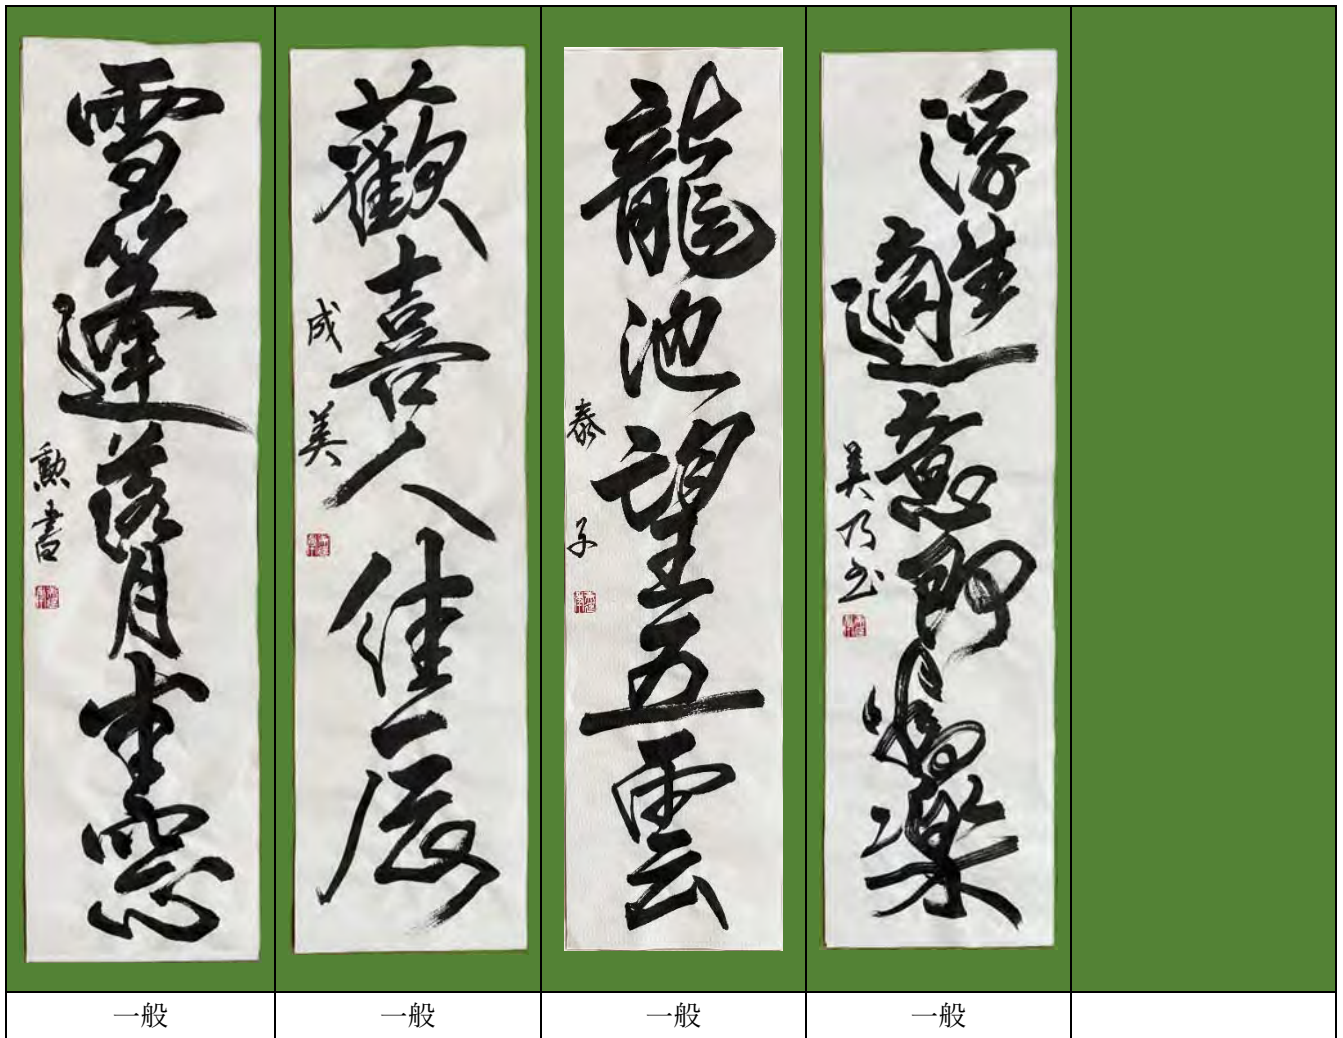 雪篷落月窓
勲書
歡喜人佳辰
成美
龍池望五雲
泰子
浮生適意即為楽
美乃書
一般
一般
一般
一般